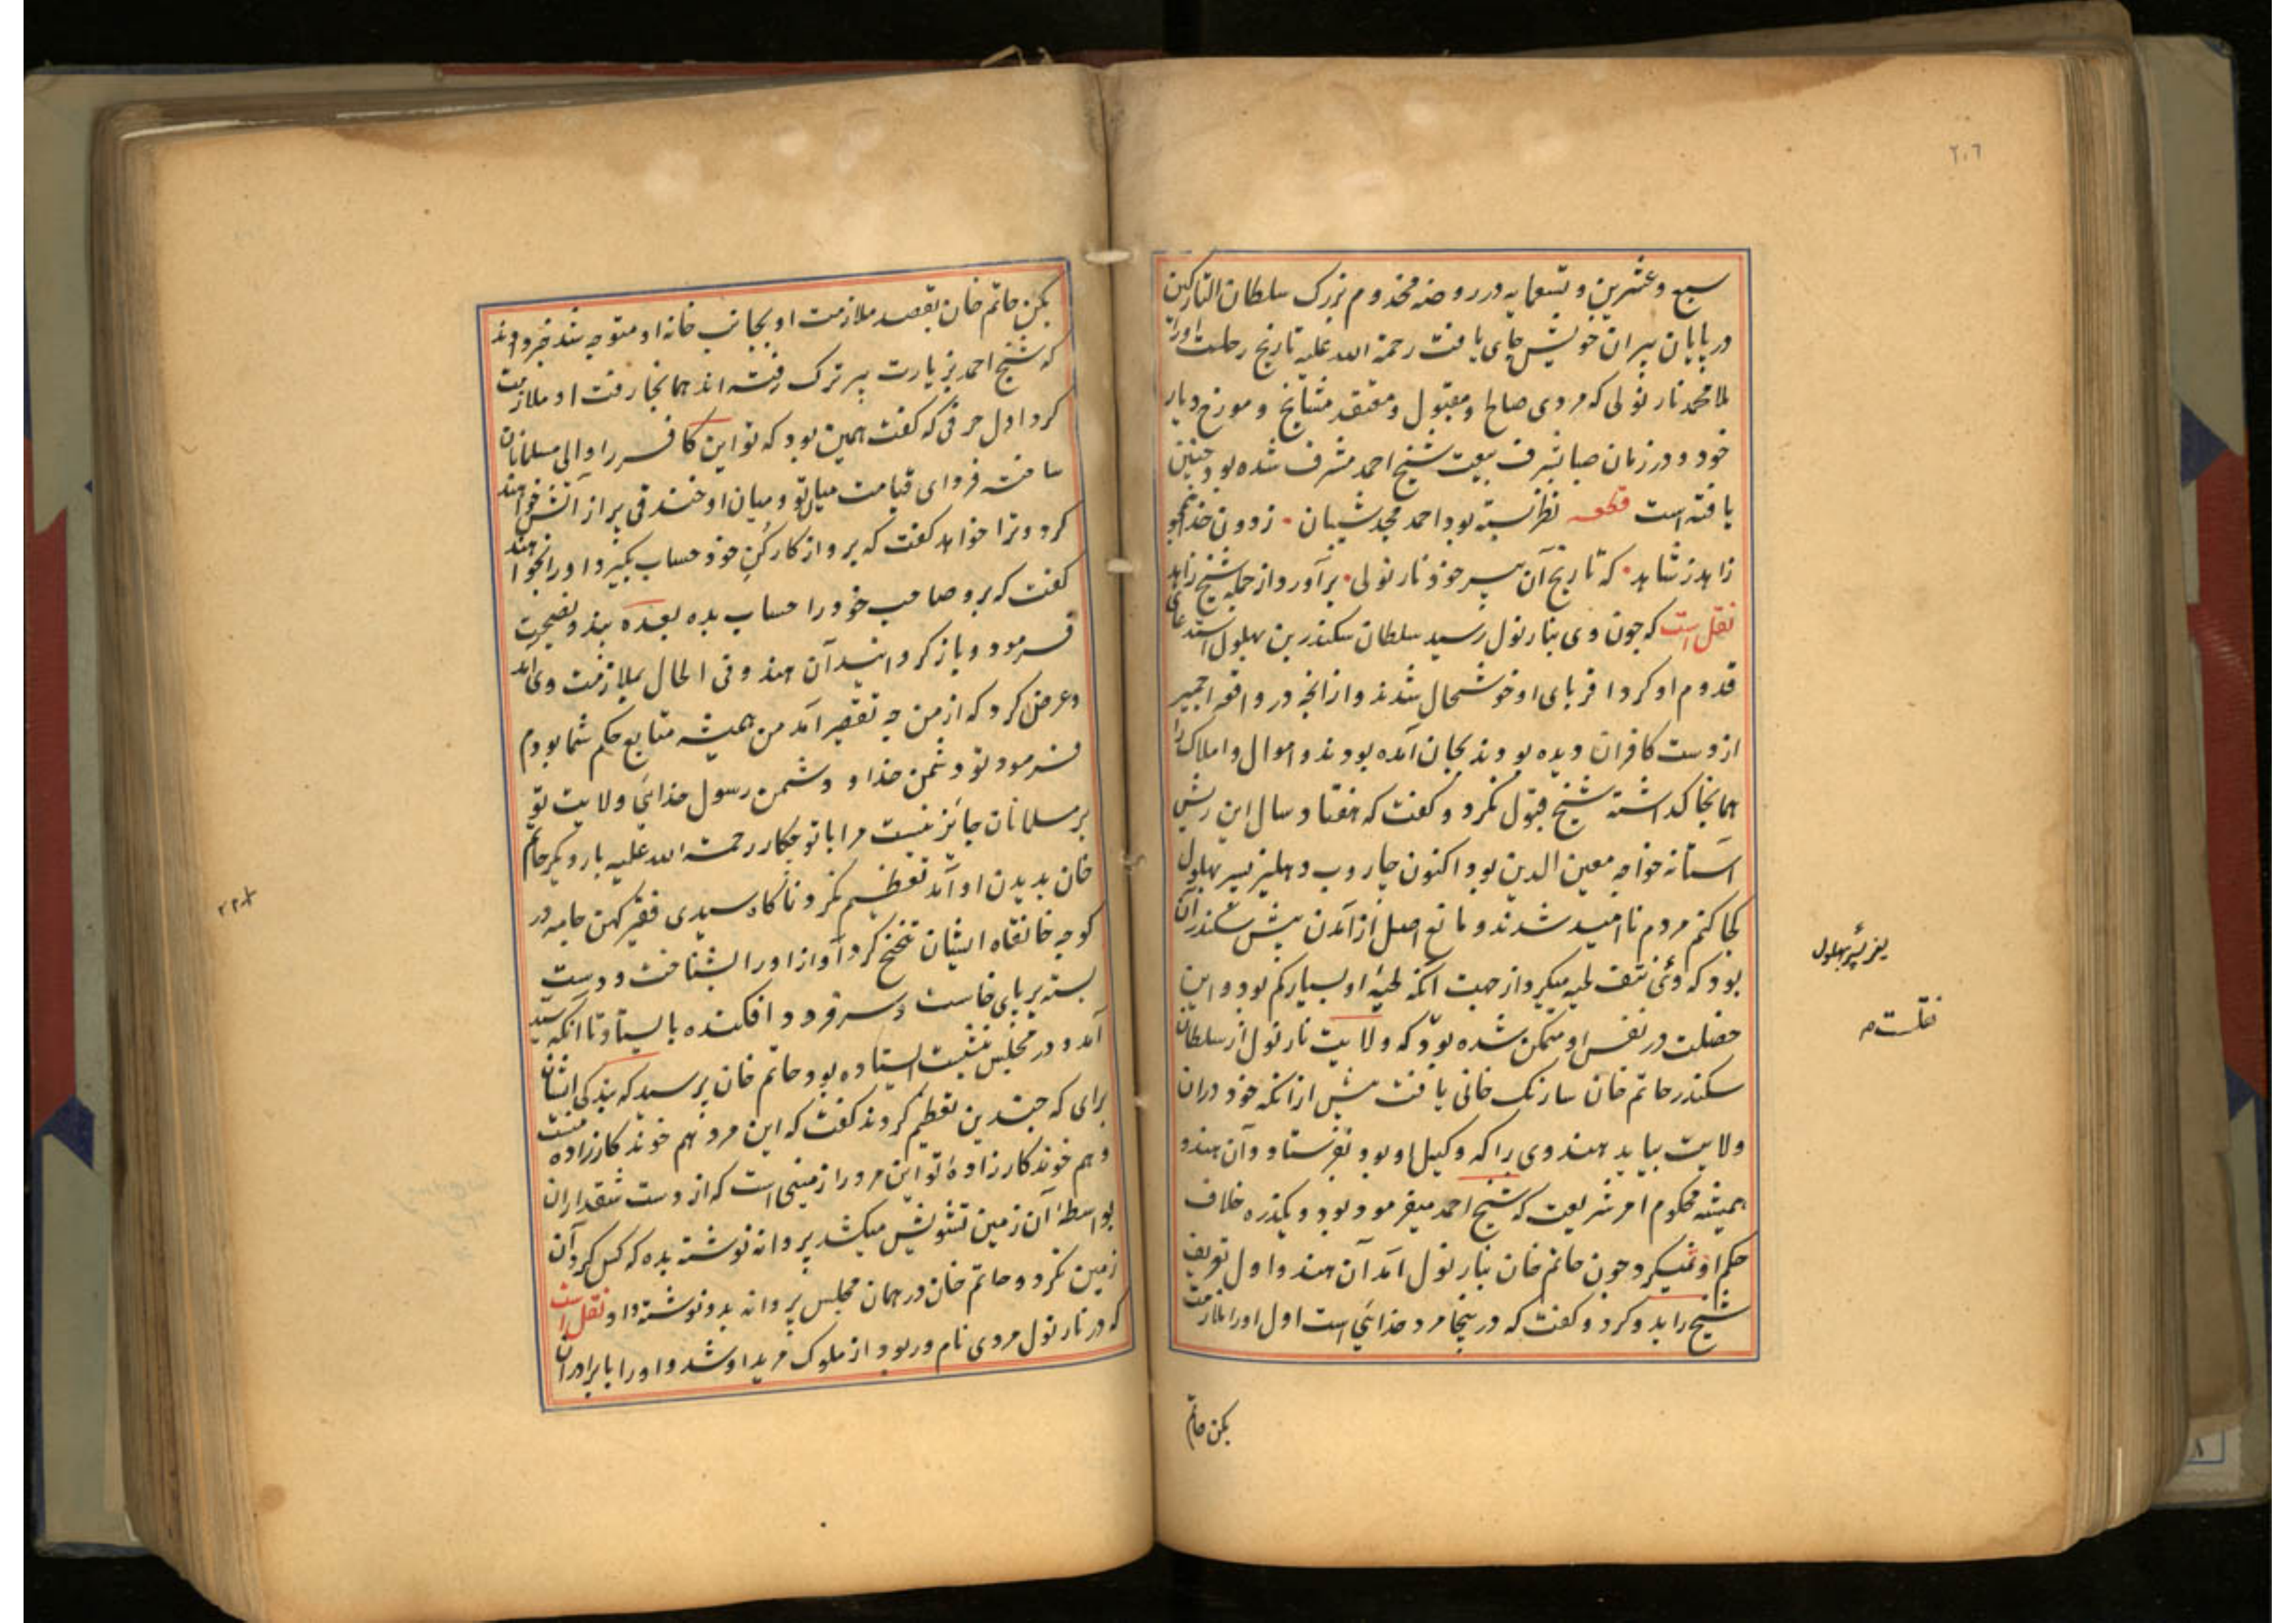 ٢٠٦
سبع و عشرین و تسعمایه در روضه مخدوم بزرک سلطان التارکین
در پایان پیران خویش جای یافت رحمة الله علیه تاریخ رحلت اورا
ملا محمد نارنولی که مردی صالح و مقبول و معتقد مشایخ و مورخ دیار
خود و در زمان صبا بشرف بیعت شیخ احمد مشرف شده بود چنین
یافته است قطعه نظر بسته بود احمد مجد شیبان زدون خدا
زاهد ز شاهد که تاریخ آن پیر خود نارنولی برآورد از جمله شیخ زاهد
نقل است که چون وی بنارنول رسید سلطان سکندر بن بهلول استدعای
قدوم او کرد اقربای او خوشحال شدند و از انچه در واقعه اجمیر
از دست کافران دیده بودند بجان آمده بودند و اموال و املاک را
همانجا کذاشته شیخ قبول نکرد و کفت که هفتاد سال این ریش
آستانه خواجه معین الدین بود اکنون جاروب دهلیز پسر بهلول
کجا کنم مردم ناامید شدند و مانع اصل از آمدن پیش سکندر آن
بود که وی نتف لحیه میکرد از جهت آنکه لحیهٔ او بسیار کم بود و این
خصلت در نفس او متمکن شده بود که ولایت نارنول از سلطان
سکندر حاتم خان سارنک خانی یافت پیش ازانکه خود دران
ولایت بیاید هندوی را که وکیل او بود بفرستاد و آن هندو
همیشه محکوم امر شریعت که شیخ احمد میفرمود بود و یکذره خلاف
حکم او نمیکرد چون حاتم خان بنارنول آمد آن هندو اول تعریف
شیخ را بدو کرد و کفت که درینجا مرد خدایٔی است اول اورا ملازمت
بکن حاتم
یعنی پسر بهلول
نقلست م
بکن حاتم خان بقصد ملازمت او بجانب خانه او متوجه شد خبر دادند
که شیخ احمد بزیارت پیر ترک رفته اند همانجا رفت او ملازمت
کرد اول حرفی که کفت همین بود که تو این کافر را والی مسلمانان
ساخته فردای قیامت میان تو و میان او خندقی پر از آتش خواهند
کرد و ترا خواهد کفت که برو از کارکن خود حساب بکیر و او را خواهند
کفت که برو صاحب خود را حساب بده بعده پند و نصیحت
فرمود و باز کردانید آن هندو فی الحال بملازمت وی آمد
و عرض کرد که از من چه تقصیر آمد من همیشه متابع حکم شما بودم
فرمود تو دشمن خدا و دشمن رسول خدایٔی ولایت تو
بر مسلمانان جایٔز نیست مرا با تو چکار رحمة الله علیه بار دیکر حاتم
خان بدیدن او آمد تعظیم نکرد ناکاه سیدی فقیر کهن جامه در
کوچه خانقاه ایشان تنحنح کرد آواز اورا بشناخت و دست
بسته بر پای خاست و سر فرود افکنده بایستاد تا آنکه سید
آمد و در مجلس ننشست ایستاده بود حاتم خان پرسید که بندکی ایشان
برای که چندین تعظیم کردند کفت که این مرد هم خوندکار زاده منست
و هم خوندکار زادهٔ تو این مرد را زمینی است که از دست شقداران
بواسطهٔ آن زمین تشویش میکشد پروانه نوشته بده که کس کرد آن
زمین نکردد حاتم خان در همان مجلس پروانه بدو نوشته داد نقل است
که در نارنول مردی نام ور بود از ملوک مرید او شد و اورا با برادران